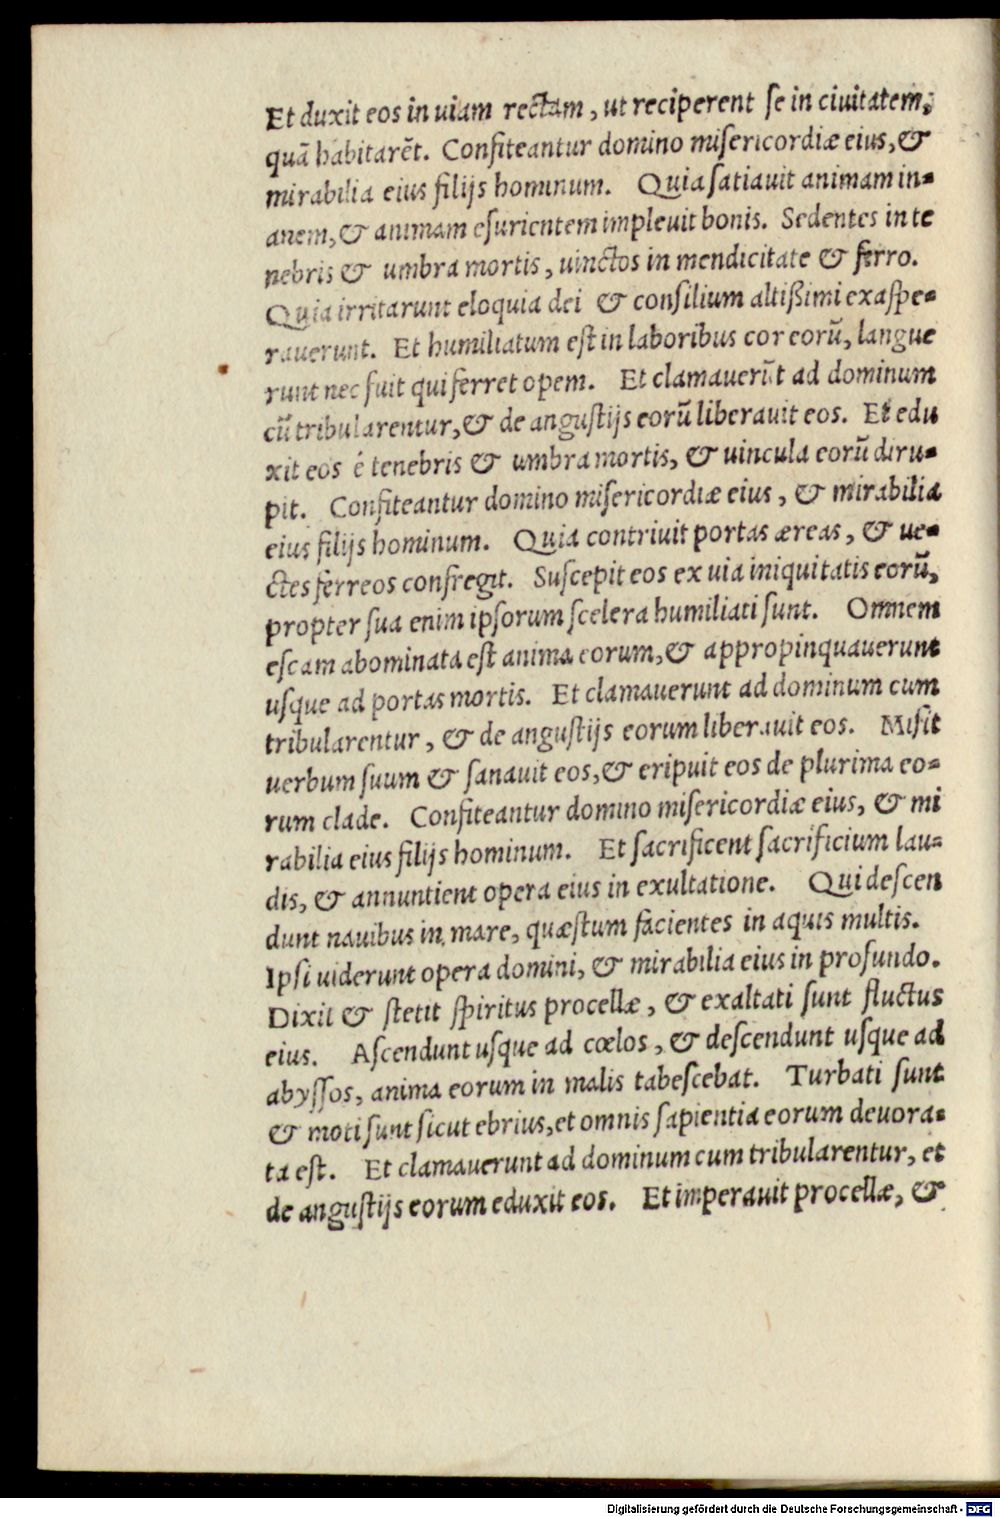 Et duxit eos in uiam rectam, ut reciperent se in ciuitatem,
quā habitarēt. Confiteantur domino misericordiæ eius, &
mirabilia eius filijs hominum. Quia satiauit animam in-
anem, & animam esurientem impleuit bonis. Sedentes in te
nebris & umbra mortis, uinctos in mendicitate & ferro.
Quia irritarunt eloquia dei & consilium altißimi exaspe-
rauerunt. Et humiliatum est in laboribus cor eorū, langue
runt nec fuit qui ferret opem. Et clamauerūt ad dominum
cū tribularentur, & de angustijs eorū liberauit eos. Et edu
xit eos é tenebris & umbra mortis, & uincula eorū diru-
pit. Confiteantur domino misericordiæ eius, & mirabilia
eius filijs hominum. Quia contriuit portas æreas, & ue-
ctes ferreos confregit. Suscepit eos ex uia iniquitatis eorū,
propter sua enim ipsorum scelera humiliati sunt. Omnem
escam abominata est anima eorum, & appropinquauerunt
usque ad portas mortis. Et clamauerunt ad dominum cum
tribularentur, & de angustijs eorum liberauit eos. Misit
uerbum suum & sanauit eos, & eripuit eos de plurima eo-
rum clade. Confiteantur domino misericordiæ eius, & mi
rabilia eius filijs hominum. Et sacrificent sacrificium lau-
dis, & annuntient opera eius in exultatione. Qui descen
dunt nauibus in mare, quæstum facientes in aquis multis.
Ipsi uiderunt opera domini, & mirabilia eius in profundo.
Dixit & stetit spiritus procellæ, & exaltati sunt fluctus
eius. Ascendunt usque ad cœlos, & descendunt usque ad
abyssos, anima eorum in malis tabescebat. Turbati sunt
& moti sunt sicut ebrius, et omnis sapientia eorum deuora-
ta est. Et clamauerunt ad dominum cum tribularentur, et
de angustijs eorum eduxit eos. Et imperauit procellæ, &
Digitalisierung gefördert durch die Deutsche Forschungsgemeinschaft - DFG